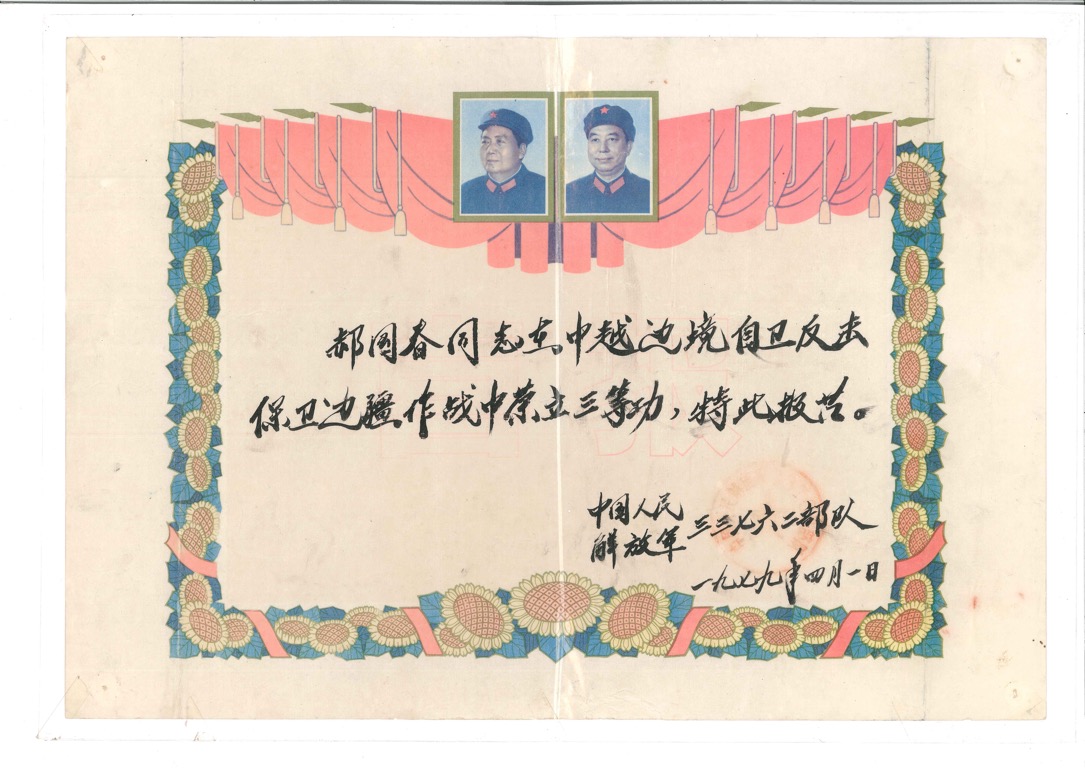 郝国春同志在中越边境自卫反击
保卫边疆作战中荣立三等功，特此报喜。
中国人民
解放军三三七六二部队
一九七九年四月一日